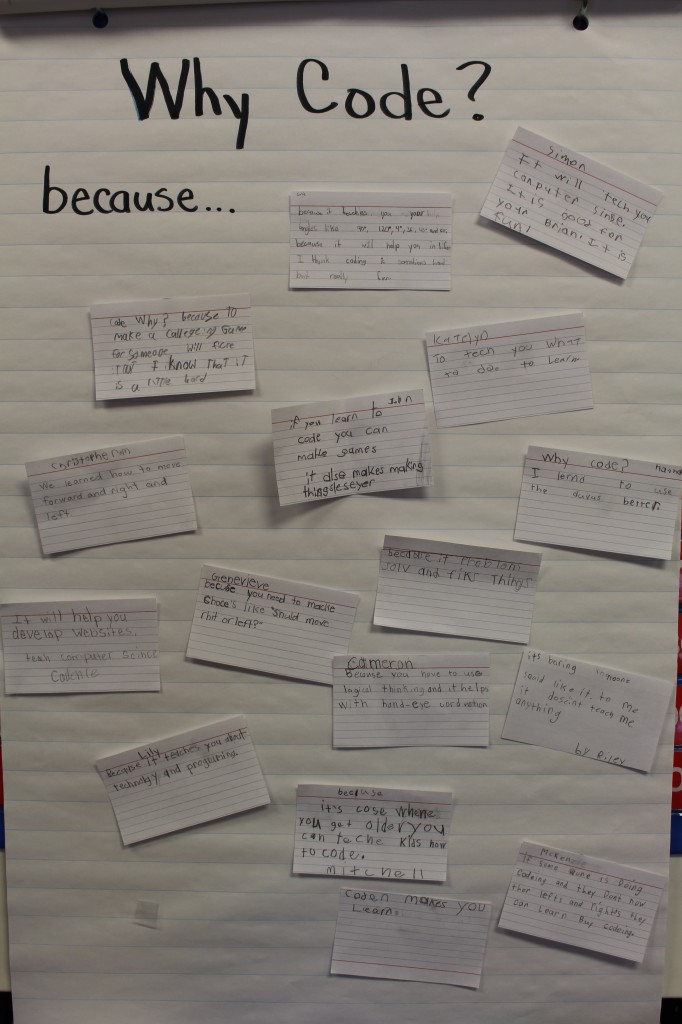 Why Code?
because...
Simon
It will tech you
computer sinse.
It is good for
your Brian. It is
fun!
because it teaches you your
angles like 90°, 120°,
because it will help you in life
I think coding is sometimes hard
but really fun
Code Why? because TO
make a Game
For Someone Will here
I know That iT
is a little hard
Katelyn
To tech you what
to doo to Learn.
John
if you learn to
code you can
make games
it also makes making
things
Christopher
We learned how to move
forward and right and
left.
Why code?
I lernd to use
the better.
because it Problom
Solv and fiks Things
Genevieve
becuse you need to macke
Choces like "Should move
rhit or left?"
It will help you
develop websites.
teah computer
Cameron
Because you have to use
logical thinking and it helps
with hand-eye
its boring
like it to me
it teach me
anything
by Riley
Lily
Because it teches you about
and programing
because
it's cose when
you get older you
can teche kids how
to code.
mitchell
McKenzie
If some one is Doing
Codeing and they Dont now
ther lefts and rights they
can Learn Buy codeing.
makes you
Learn.